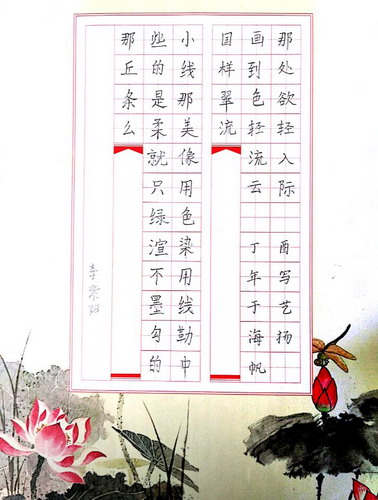 那些小
丘的线
条是那
么柔美
就像
只用
绿色
渲染
不用
墨线
勾勒
的中
国画那
样到处
翠色欲
流轻轻
流入
云际
丁酉
年写
于艺
海扬
帆
李紫阳